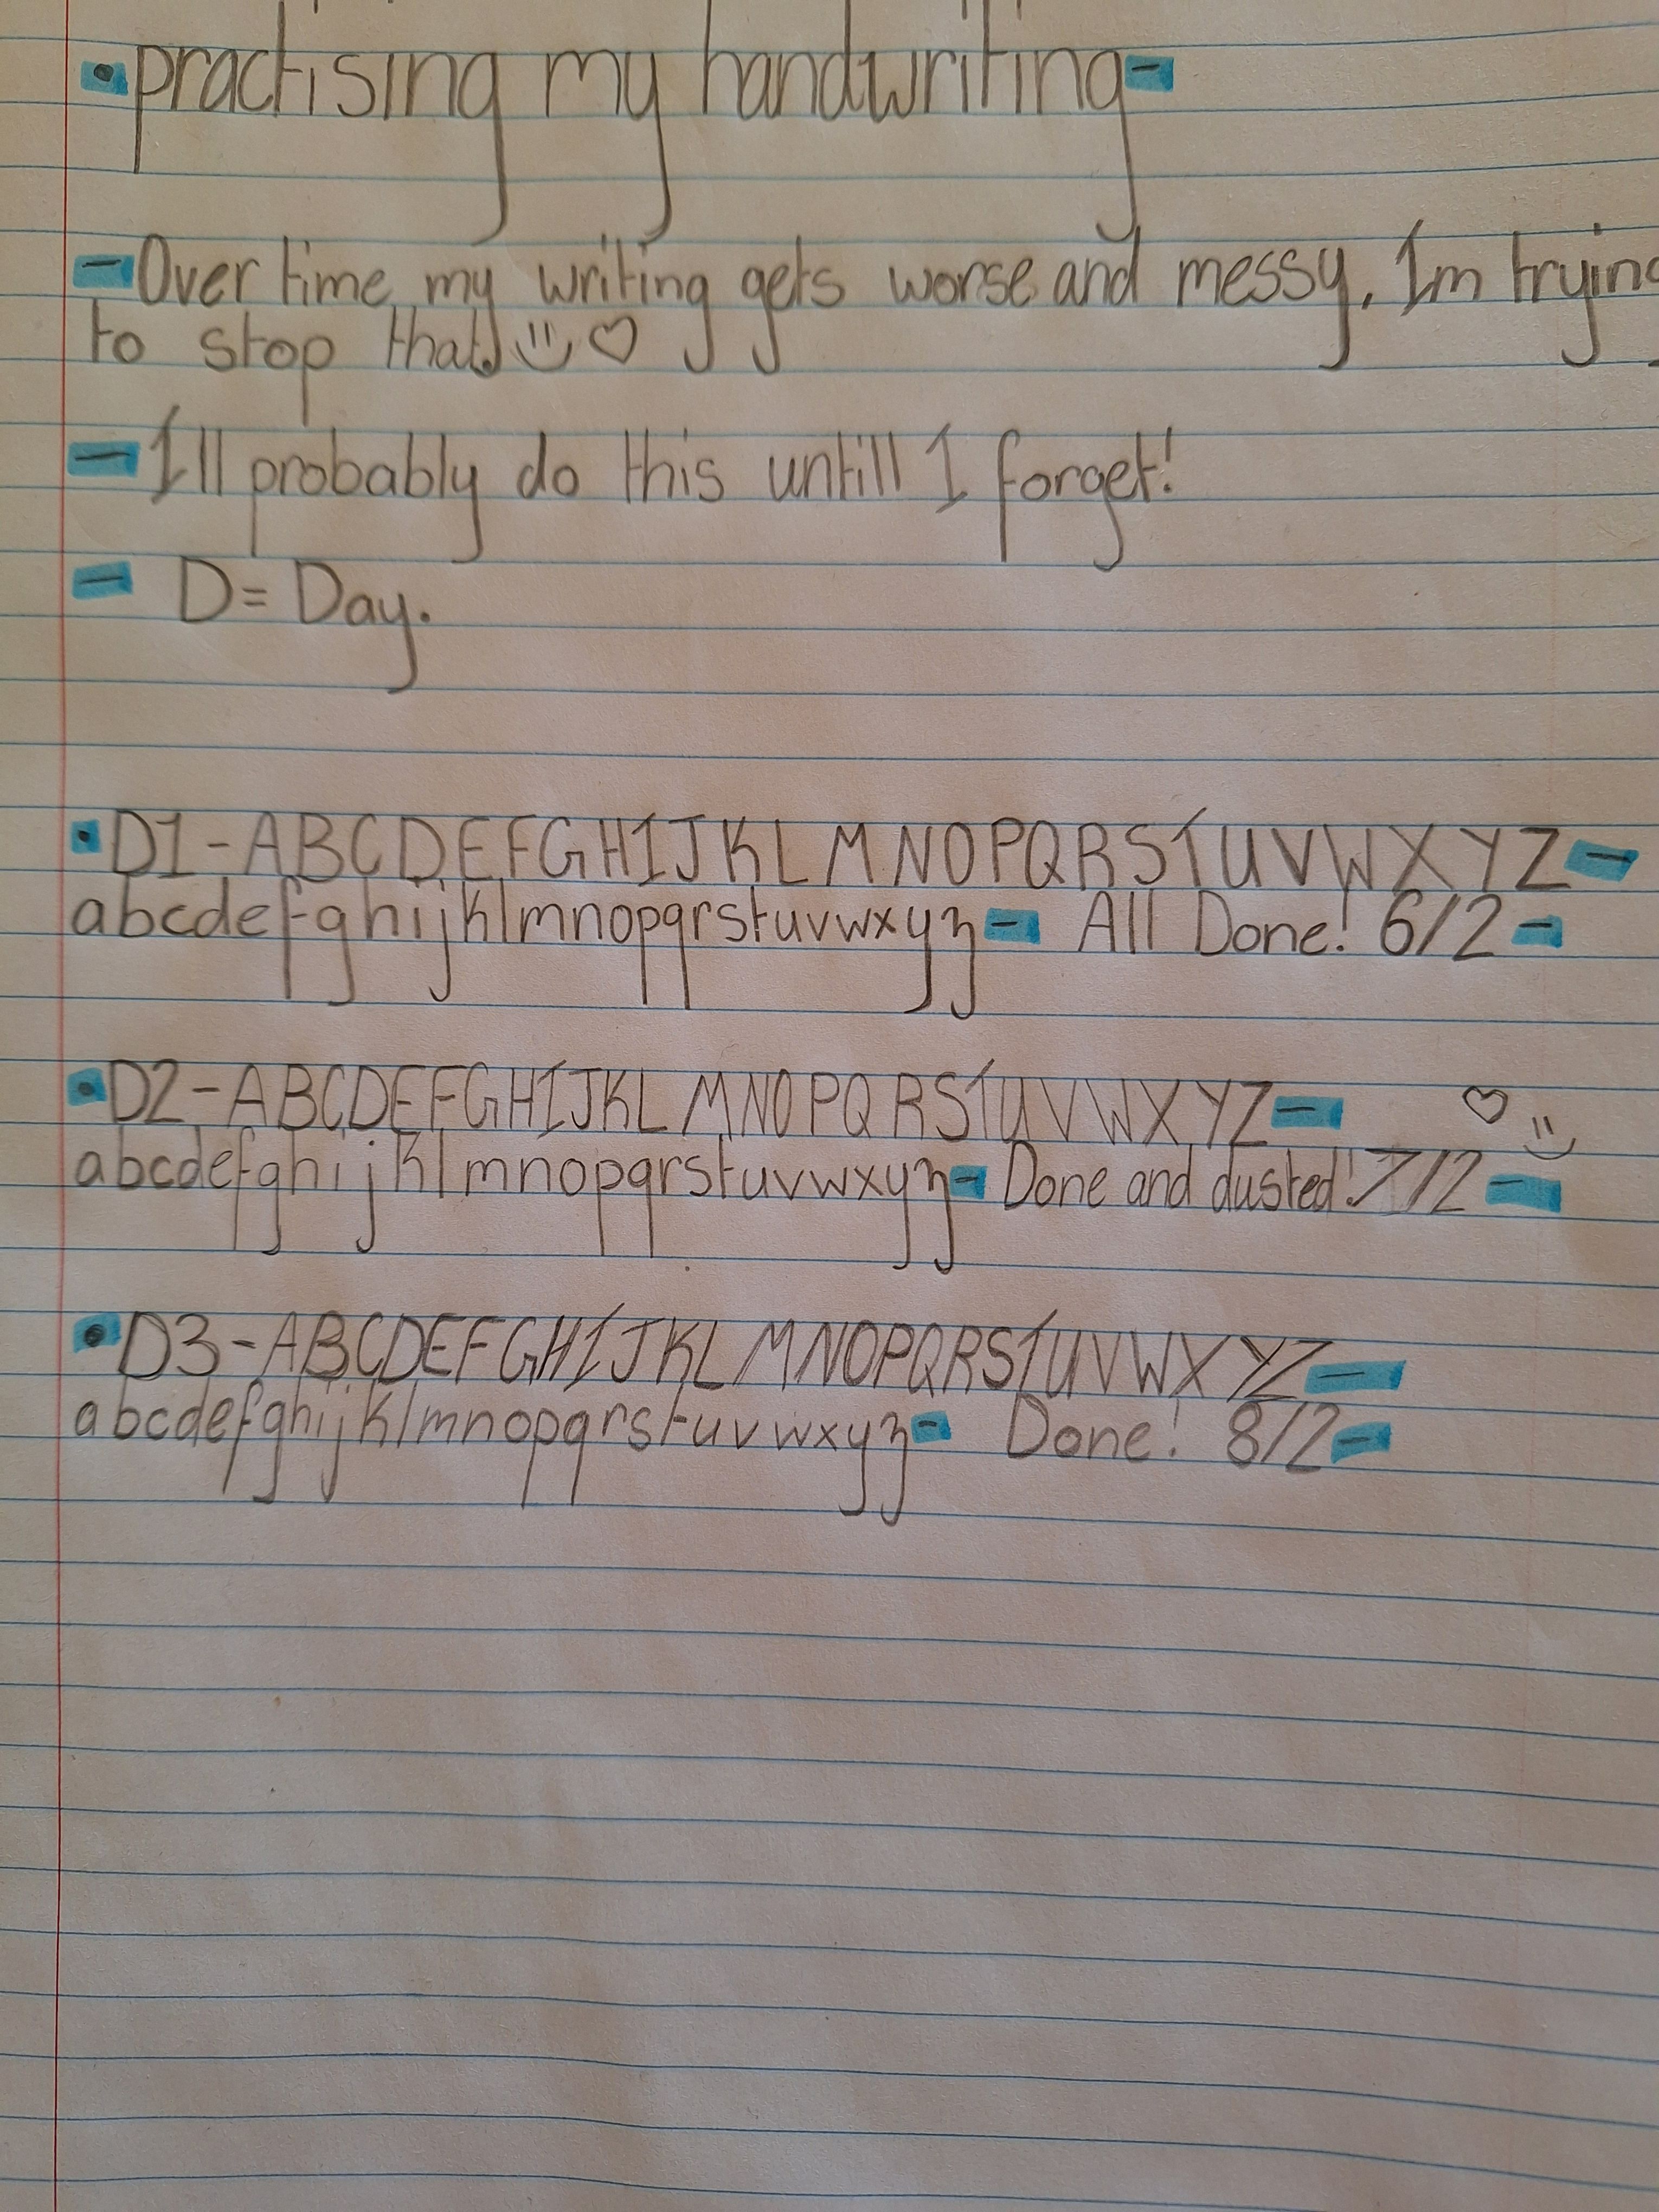 • practising my handwriting -
- Over time my writing gets worse and messy. Im trying
to stop that. ♡
- Ill probably do this untill I forget!
- D = Day.
• D1 - ABCDEFGHIJKLMNOPQRSTUVWXYZ -
abcdefghijklmnopqrstuvwxyz - All Done! 6/2 -
• D2 - ABCDEFGHIJKLMNOPQRSTUVWXYZ - ♡
abcdefghijklmnopqrstuvwxyz - Done and dusted! 7/2 -
• D3 - ABCDEFGHIJKLMNOPQRSTUVWXYZ -
abcdefghijklmnopqrstuvwxyz - Done! 8/2 -